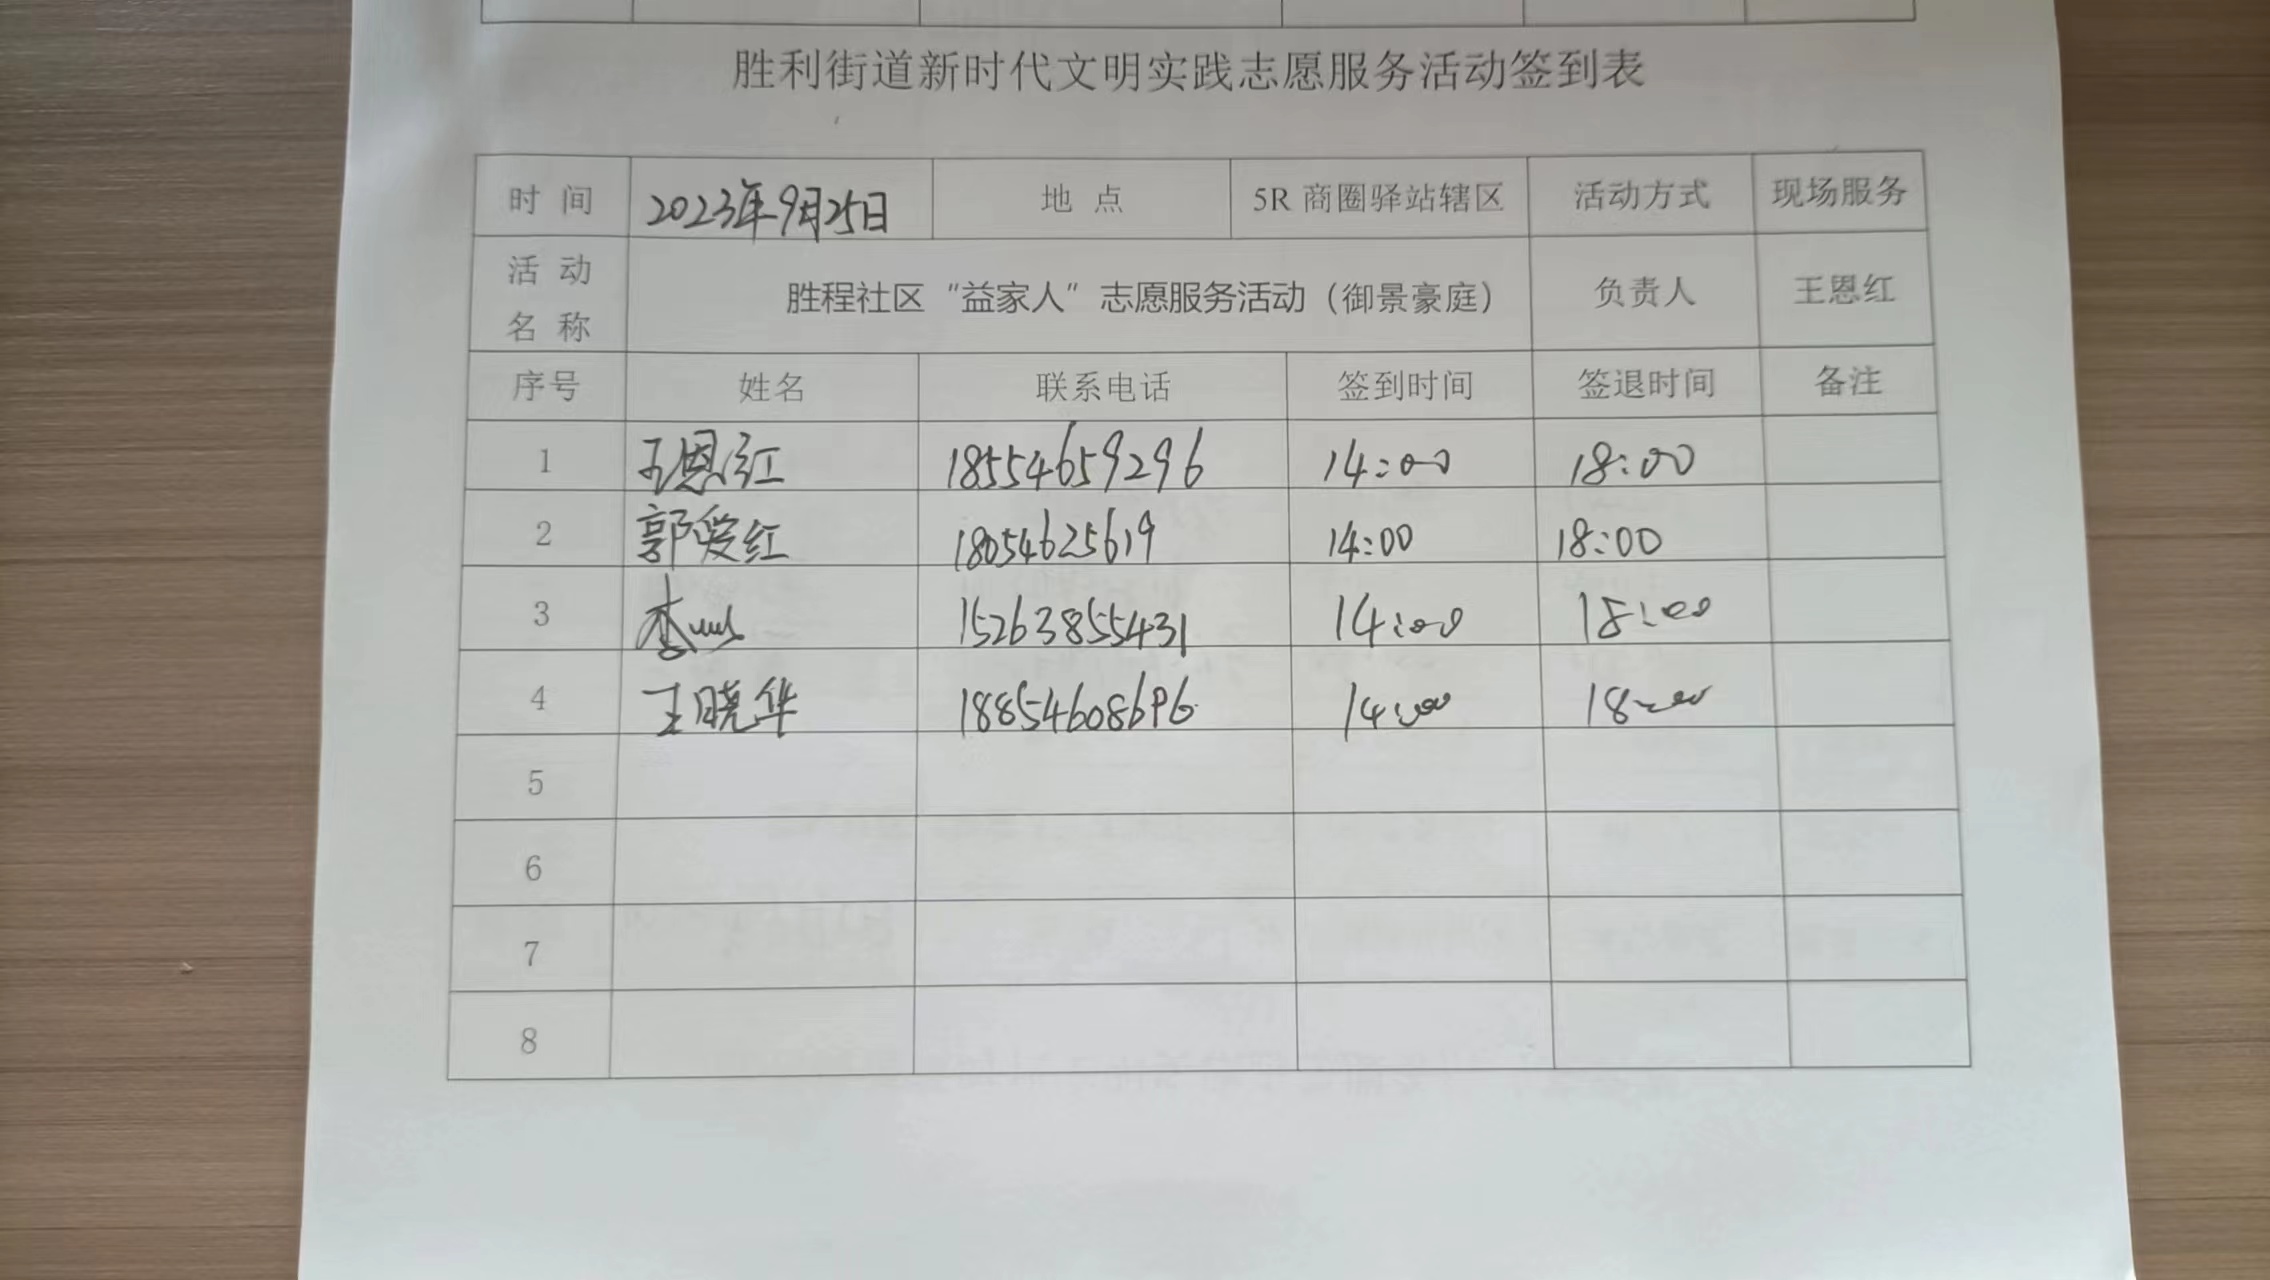 胜利街道新时代文明实践志愿服务活动签到表
时 间 2023年9月25日 地 点 5R 商圈驿站辖区 活动方式 现场服务
活 动
名 称 胜程社区“益家人”志愿服务活动（御景豪庭） 负责人 王恩红
序号 姓名 联系电话 签到时间 签退时间 备注
1 王恩红 18554659296 14:00 18:00
2 郭爱红 18054625619 14:00 18:00
3 李 15263855431 14:00 18:00
4 王晓华 18854608696 14:00 18:00
5
6
7
8